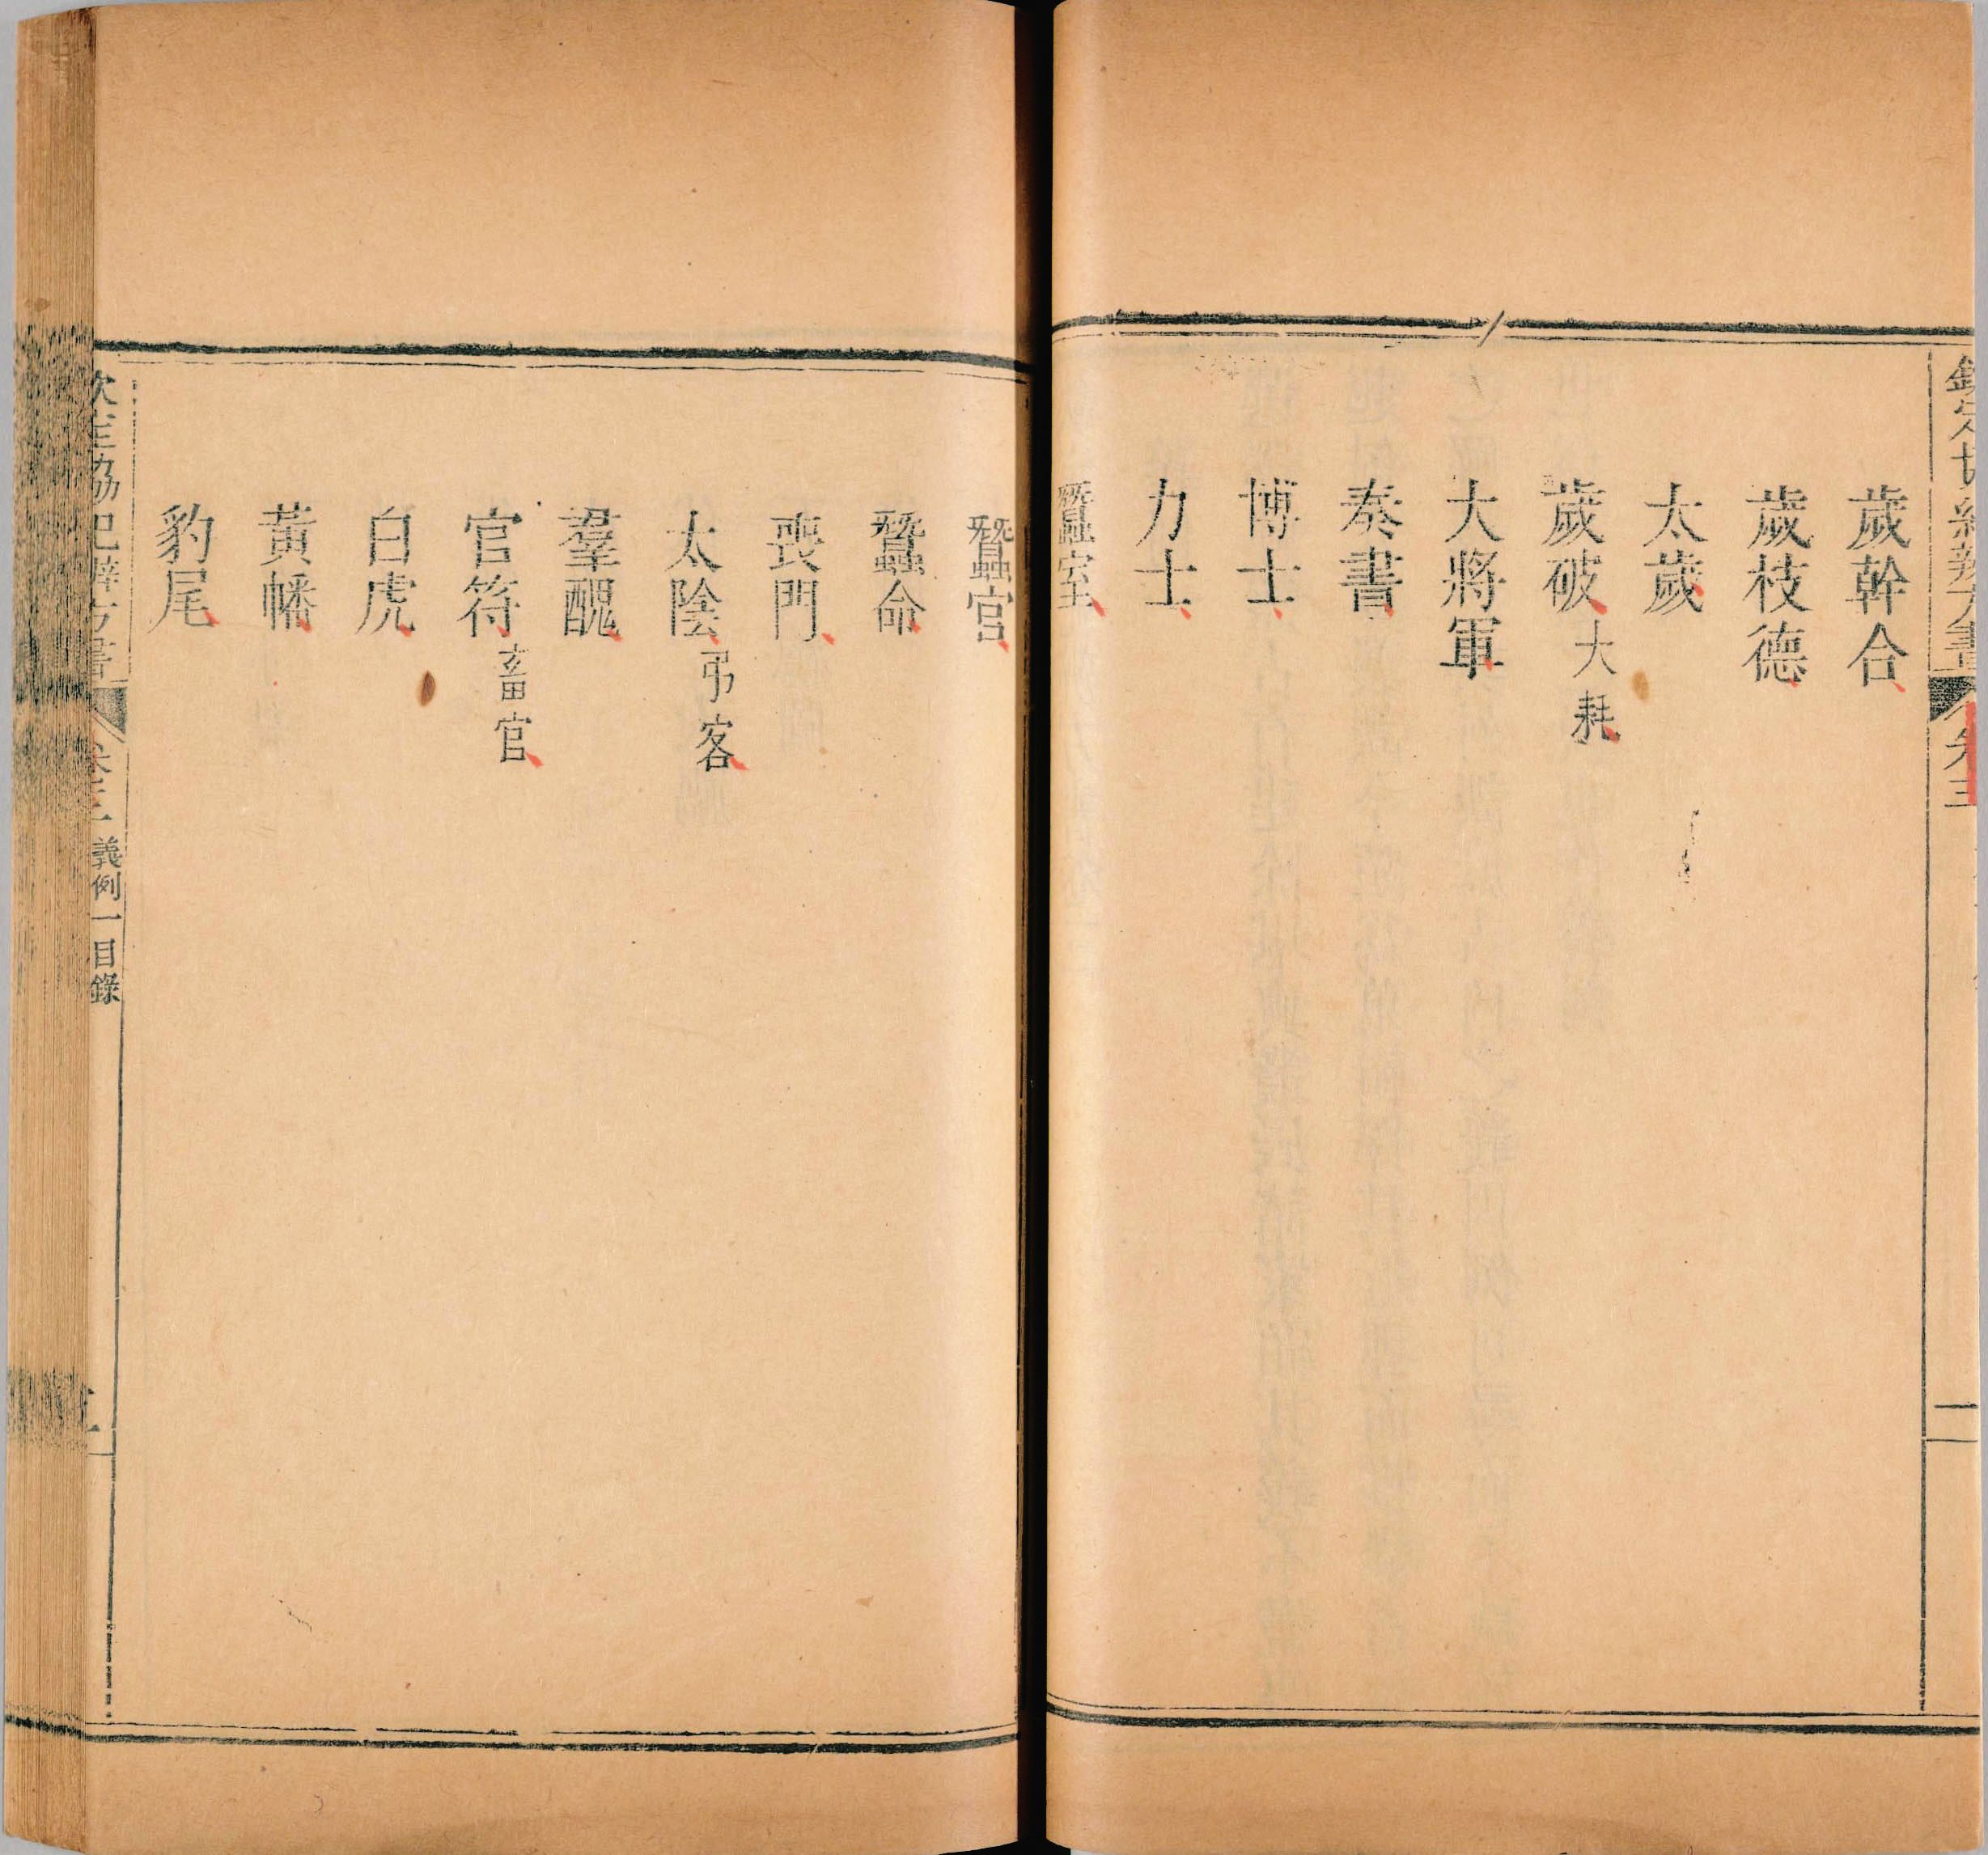 歲幹合
歲枝德
太歲
歲破 大耗
大將軍
奏書
博士
力士
蠶室
蠶官
蠶命
喪門
太陰 弔客
羣醜
官符 畜官
白虎
黃幡
豹尾
欽定協紀辨方書 卷三 義例一目錄